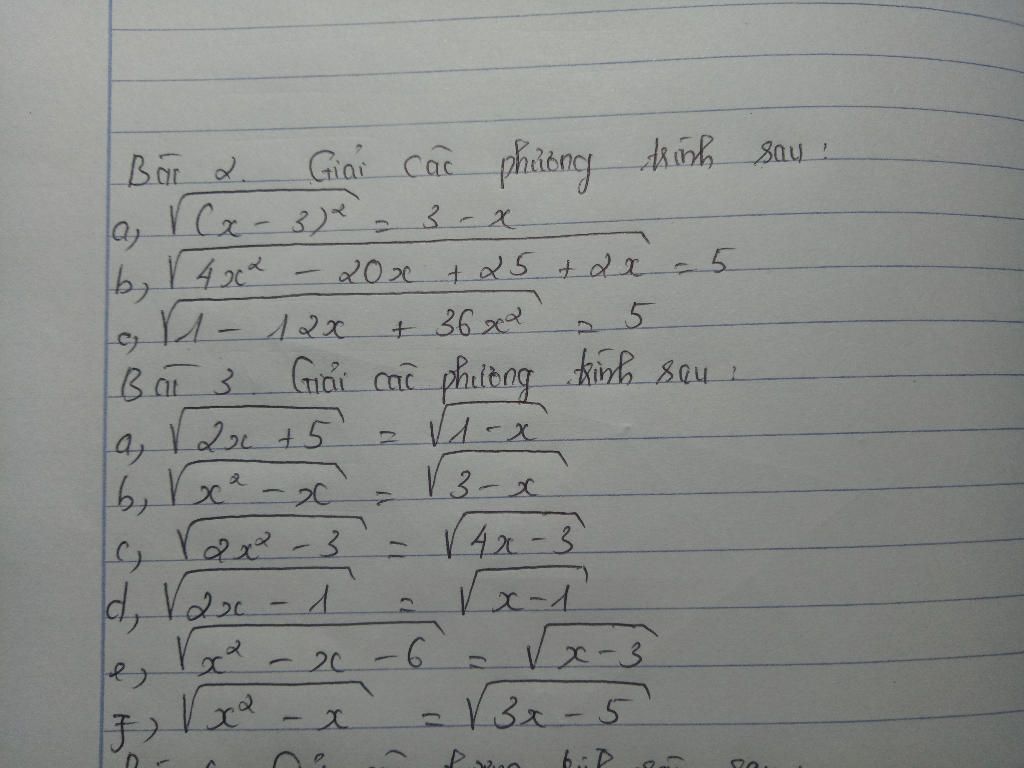 Bài 2. Giải các phương trình sau:
a, √(x - 3)² = 3 - x
b, √4x² - 20x + 25 + 2x = 5
c, √1 - 12x + 36x² = 5
Bài 3 Giải các phương trình sau:
a, √2x + 5 = √1 - x
b, √x² - x = √3 - x
c, √2x² - 3 = √4x - 3
d, √2x - 1 = √x - 1
e, √x² - x - 6 = √x - 3
f, √x² - x = √3x - 5